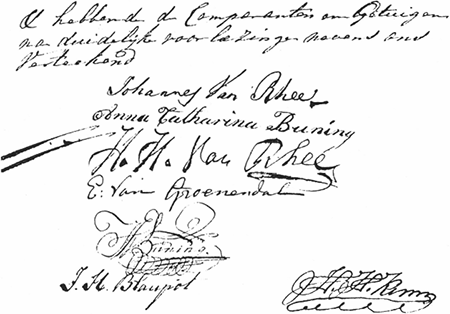 hebbende de Comparanten en Getuigen
na duidelijke voorlezinge nevens ons
Verteekend
Johannes Van Rhee
Anna Catharina Buning
H. H. Van Rhee
E: Van Groenendal
Buning
J. H. Blaupot